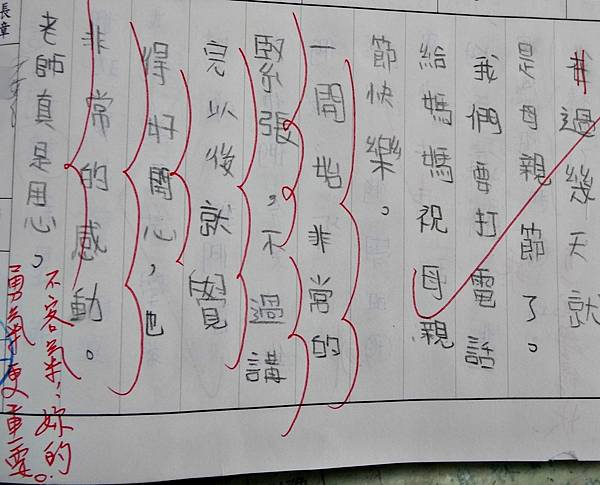 過幾天就
是母親節了。
我們要打電話
給媽媽祝母親
節快樂。
一開始非常的
緊張，不過講
完以後就覺
得好開心，也
非常的感動。
老師真是用心。
不客氣，妳的
勇氣更重要。
長章